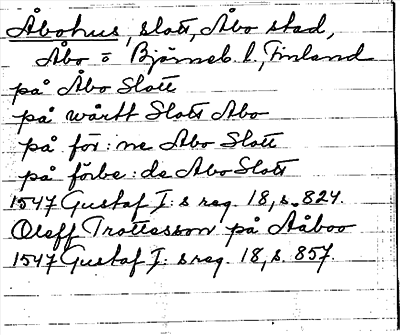 Åbohus, slott, Åbo stad,
Åbo o Björneb. l., Finland
på Åbo Slott
på wårtt Slott Abo
på för:ne Abo Slott
på förbe:de Abo Slott
1547 Gustaf I:s reg. 18, s. 824.
Oleff Trottesson på Aåboo
1547 Gustaf I:s reg. 18, s. 857.